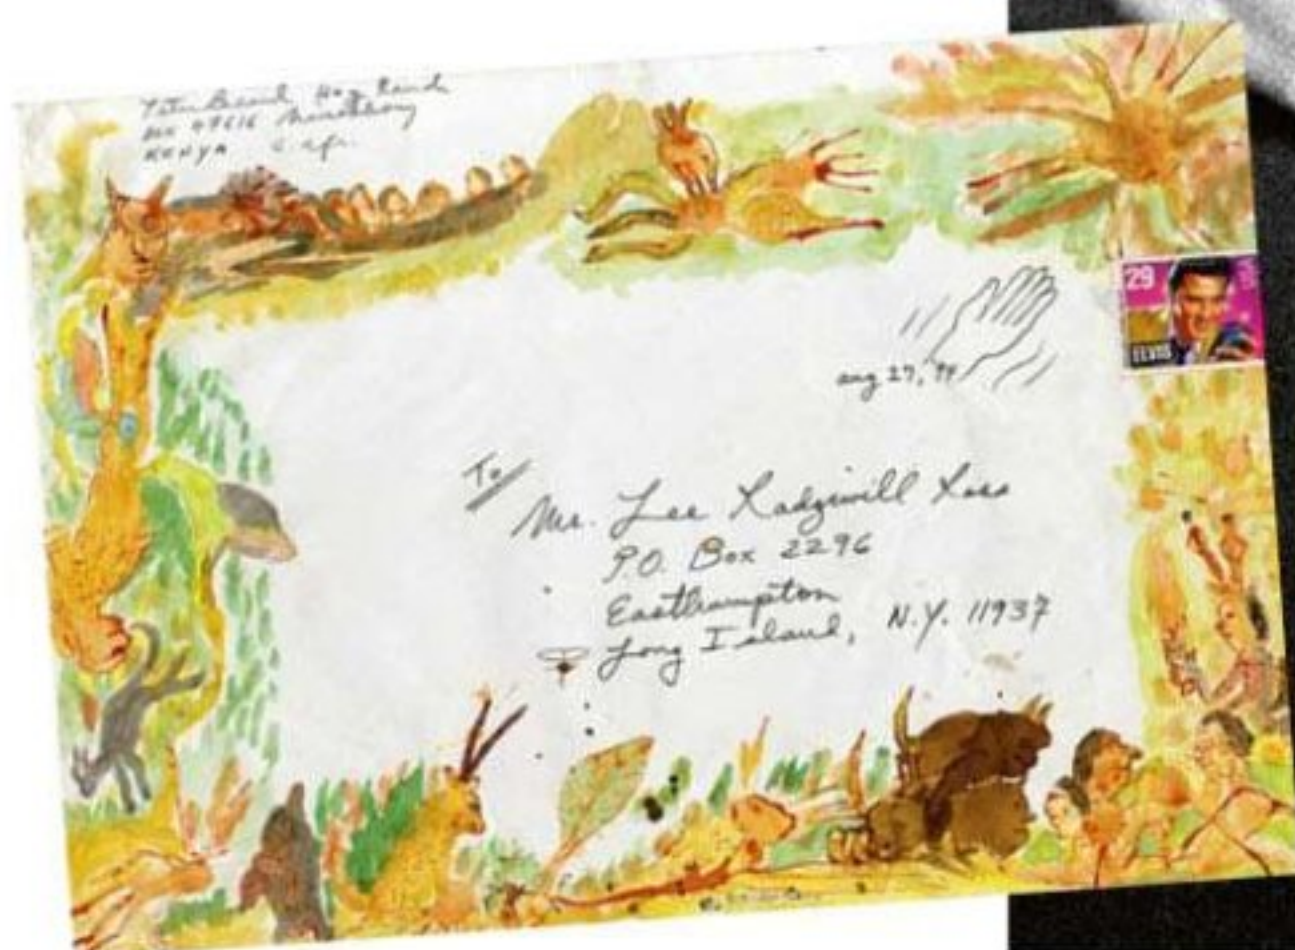 Peter Beard Hog Ranch
Box 47616
KENYA E. Afr.
29
ELVIS
aug 27, 94
To/
Mr. Lee Radziwill Ross
P.O. Box 2296
Easthampton
Long Island, N.Y. 11937